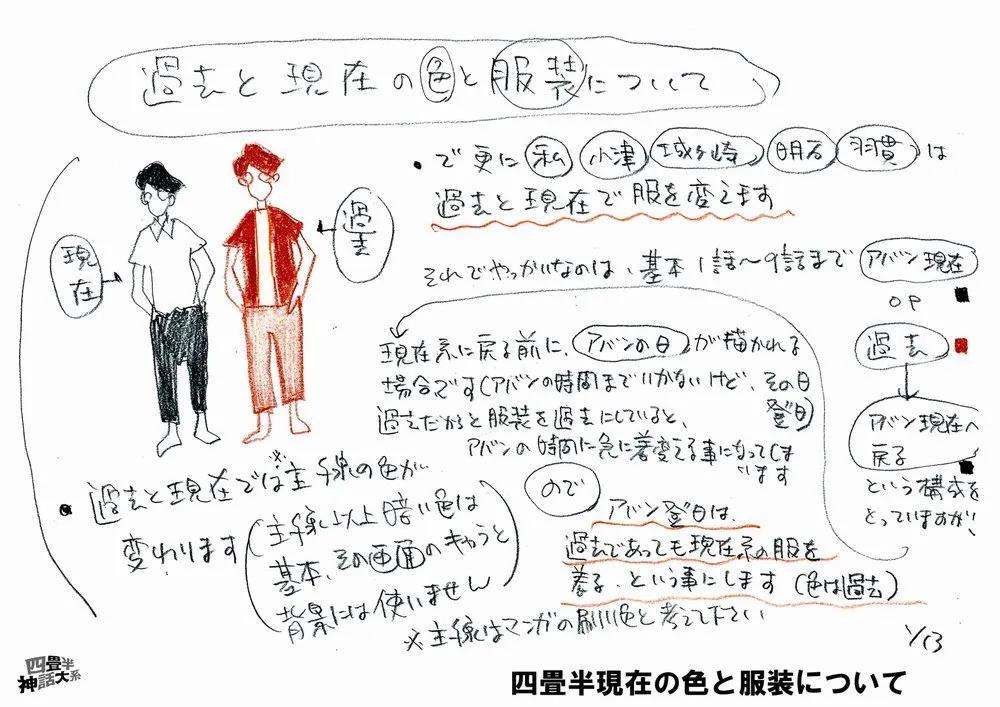 過去と現在の色と服装について
現在
過去
・で更に私 小津 城ヶ崎 明石 羽貫は
過去と現在で服を変えます
それでやっかいなのは、基本1話〜9話まで
アバン現在
OP
過去
アバン現在へ
戻る
という構成を
とっていますが、
現在系に戻る前に、アバンの日が描かれる
場合です(アバンの時間まではいかないけど、その日
当日)
過去だからと服装を過去にしていると、
アバンの時間に急に着変える事になってしま
います
ので
アバン当日は、
過去であっても現在系の服を
着る、という事にします(色は過去)
・過去と現在では※主線の色が
変わります
(主線以上暗い色は
基本、その画面のキャラと
背景には使いません)
※主線はマンガの刷り色と考えて下さい
1/13
四畳半
神話大系
四畳半現在の色と服装について